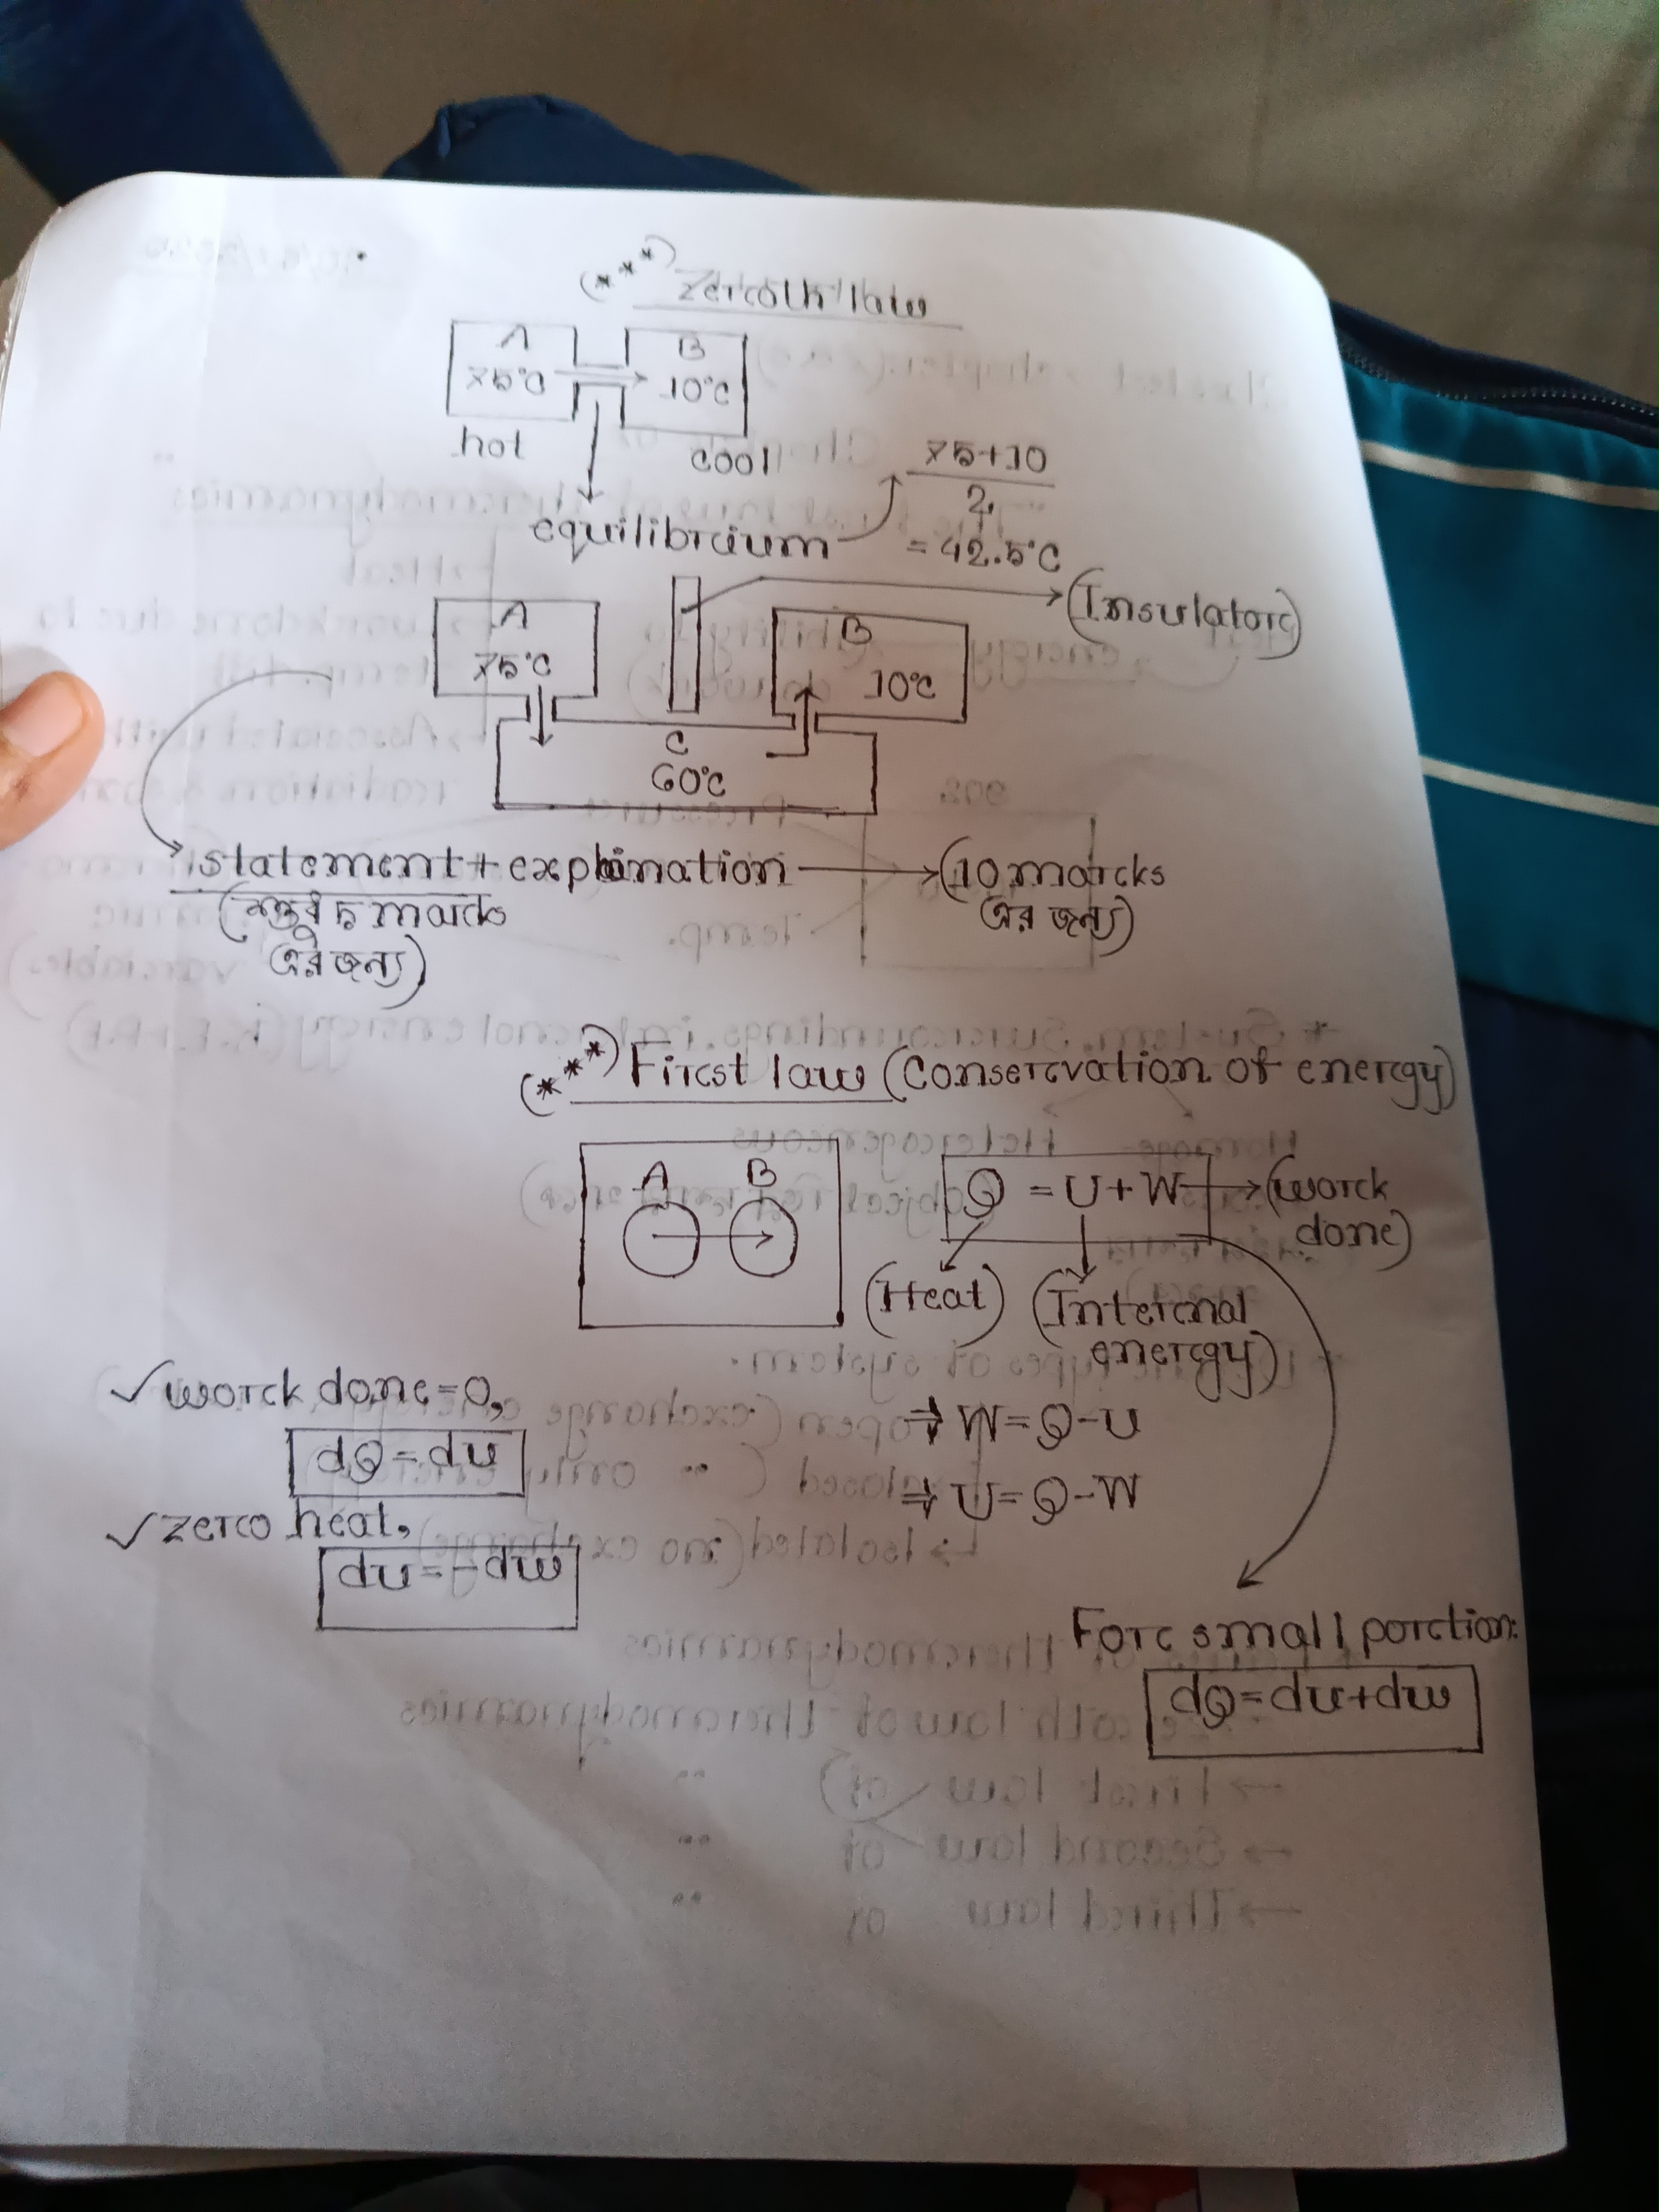 (***) Zeroth law
A
75°C
B
10°C
hot
cool
equilibrium
75+10
2
= 42.5°C
A
75°C
B
10°C
(Insulator)
C
60°C
statement + explaination → (10 marks
এর জন্য)
5 marks
এর জন্য)
(***) First law (Conservation of energy)
A B
Q = U + W → (work
done)
(Heat) (Internal
energy)
✓ work done = 0,
dQ = du
⇒ W = Q - U
⇒ U = Q - W
✓ zero heat,
du = -dw
For small portion:
dQ = du + dw